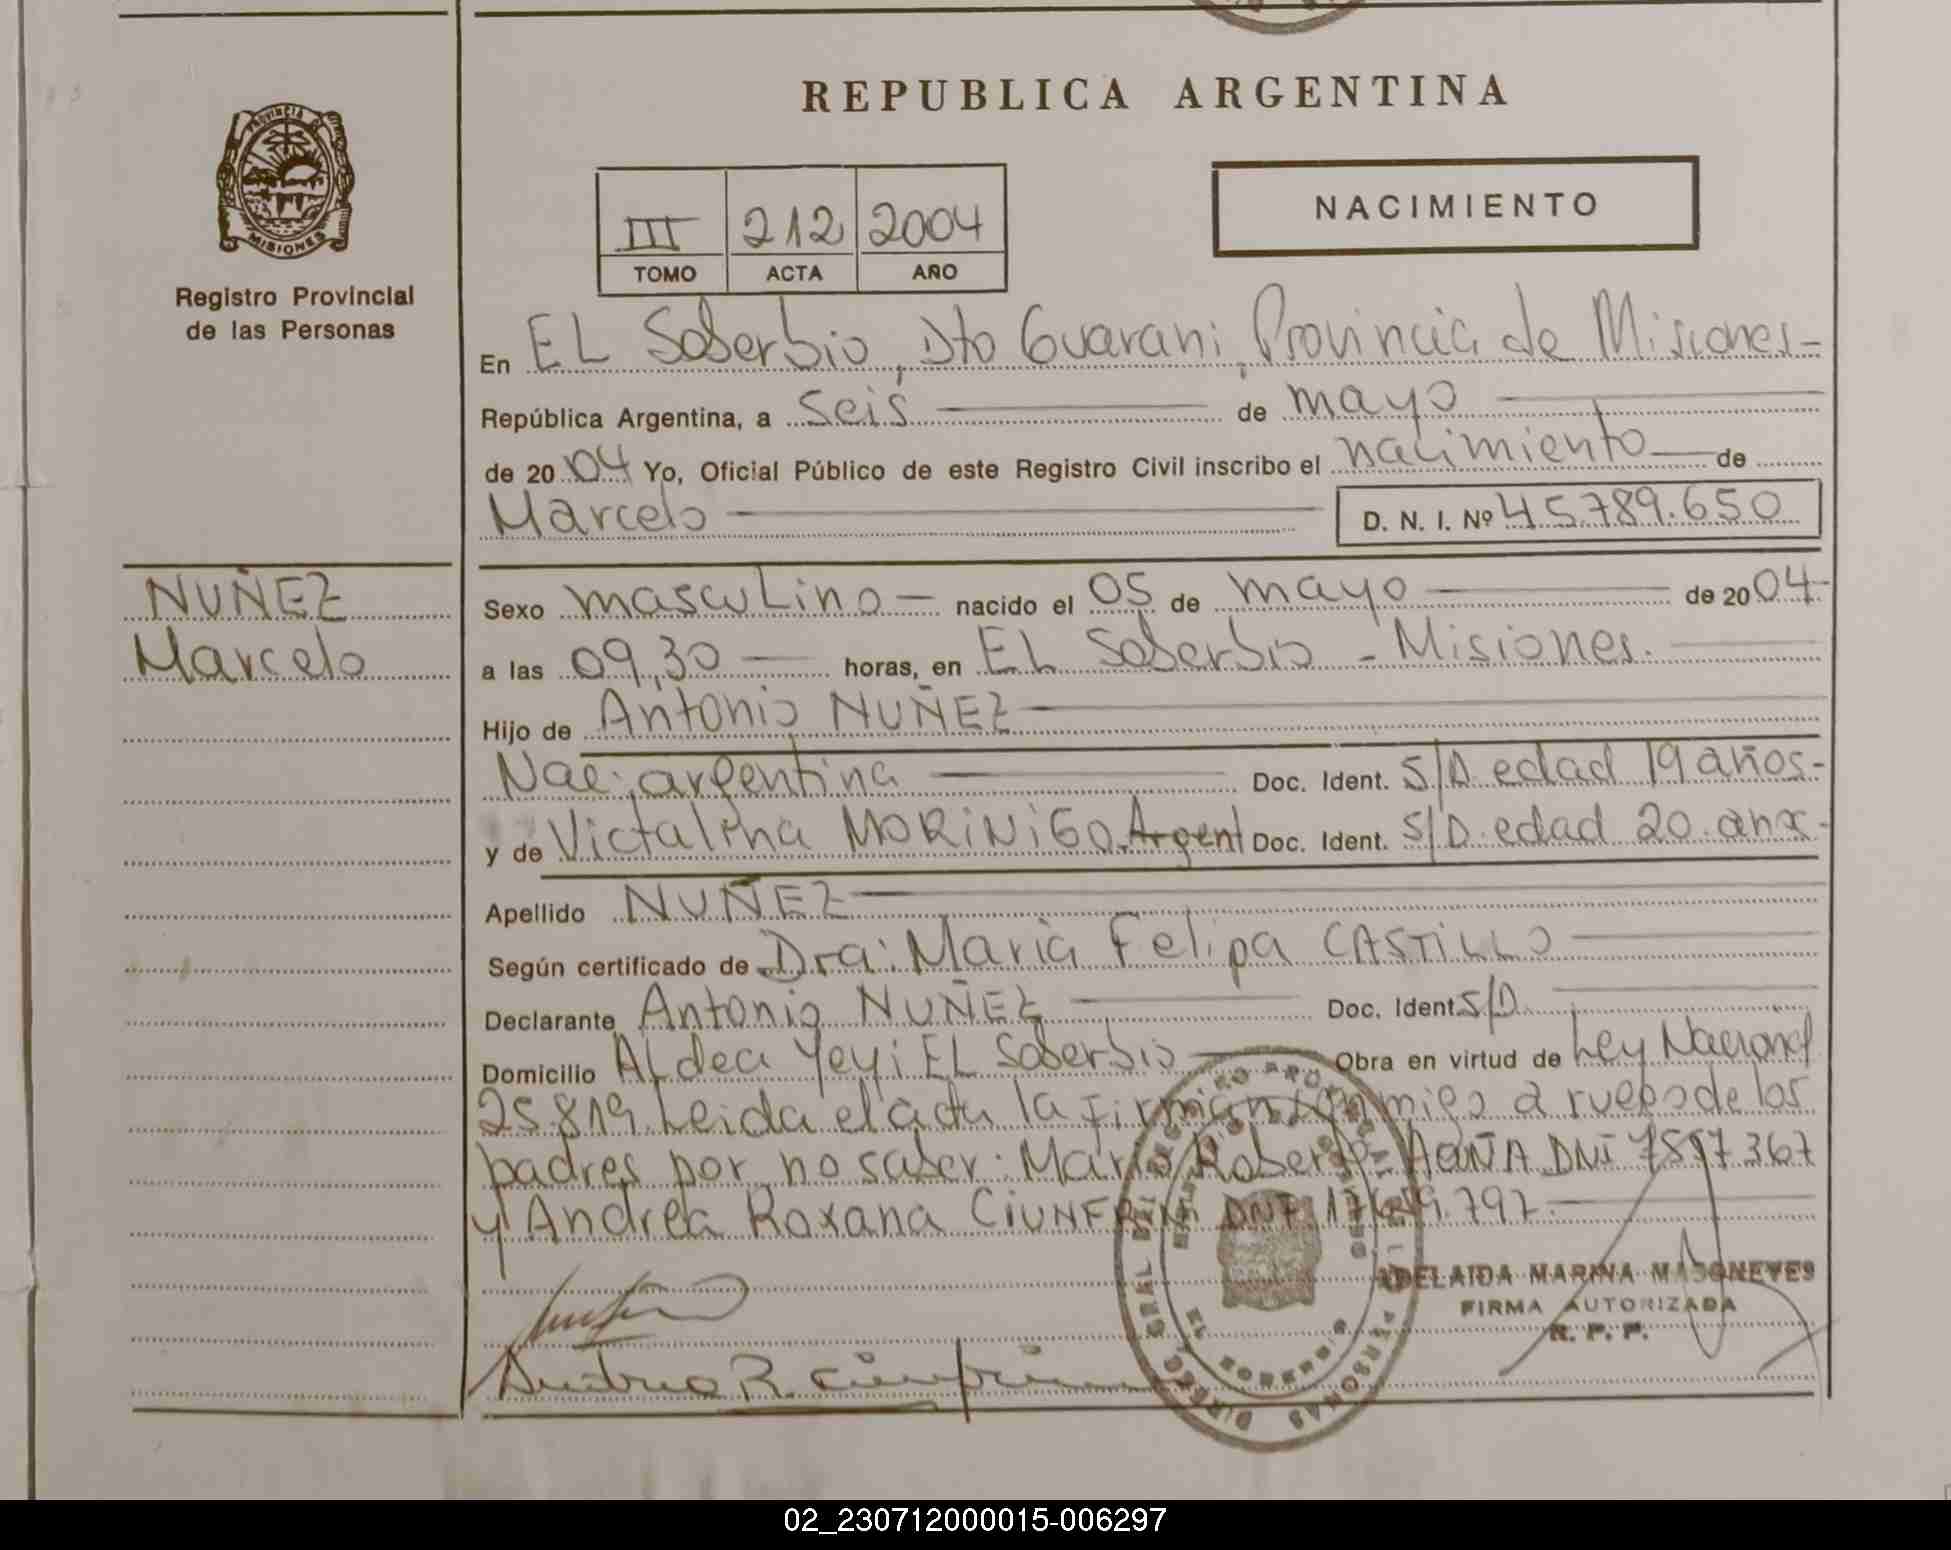 REPUBLICA ARGENTINA
PROVINCIA DE MISIONES
Registro Provincial
de las Personas
III 212 2004
TOMO ACTA AÑO
NACIMIENTO
En EL Soberbio, Dto Guarani, Provincia de Misiones-
República Argentina, a seis de mayo
de 2004 Yo, Oficial Público de este Registro Civil inscribo el nacimiento de
Marcelo D. N. I. Nº 45789.650
NUÑEZ
Marcelo
Sexo masculino nacido el 05 de mayo de 2004-
a las 09,30 horas, en EL Soberbio - Misiones.
Hijo de Antonio NUÑEZ
Nac. argentina Doc. Ident. S/D. edad 19 años-
y de Victalina MORiNiGO. Argent Doc. Ident. S/D. edad 20 años-
Apellido NUÑEZ
Según certificado de Dra: Maria Felipa CASTILLO
Declarante Antonio NUÑEZ Doc. Ident. S/D.
Domicilio ALdea Yeyi EL Soberbio Obra en virtud de Ley Nacional
25.819. Leida el acta la firman conmigo a ruego de los
padres por no saber: Mario Roberto DNI
y Andrea Roxana DNI
ADELAIDA MARINA MASONEVES
FIRMA AUTORIZADA
R. P. P.
02_230712000015-006297